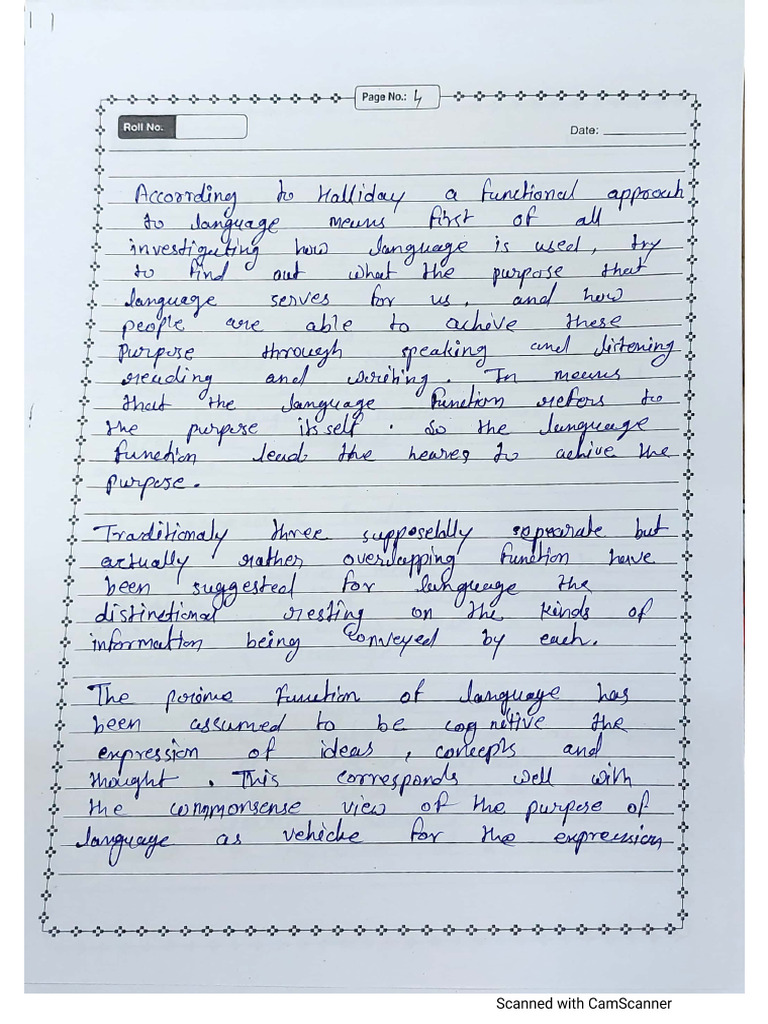 Page No.: 4
Roll No.
Date:
Accorrding to Halliday a functional approach
to language means first of all
investiguting how language is used, try
to find out what the purpose that
language serves for us, and how
people are able to achive these
purpose through speaking and listening
reading and writing. In means
that the language function refers to
the purpose itself. So the language
function lead the hearer to achive the
purpose.
Traditionaly three supposelally separate but
actually rather overlapping function have
been suggested for language the
distinctional resting on the kinds of
information being conveyed by each.
The prime function of language has
been assumed to be cognitive the
expression of ideas, concepts and
thought. This corresponds well with
the commonsense view of the purpose of
language as vehicle for the expression
Scanned with CamScanner